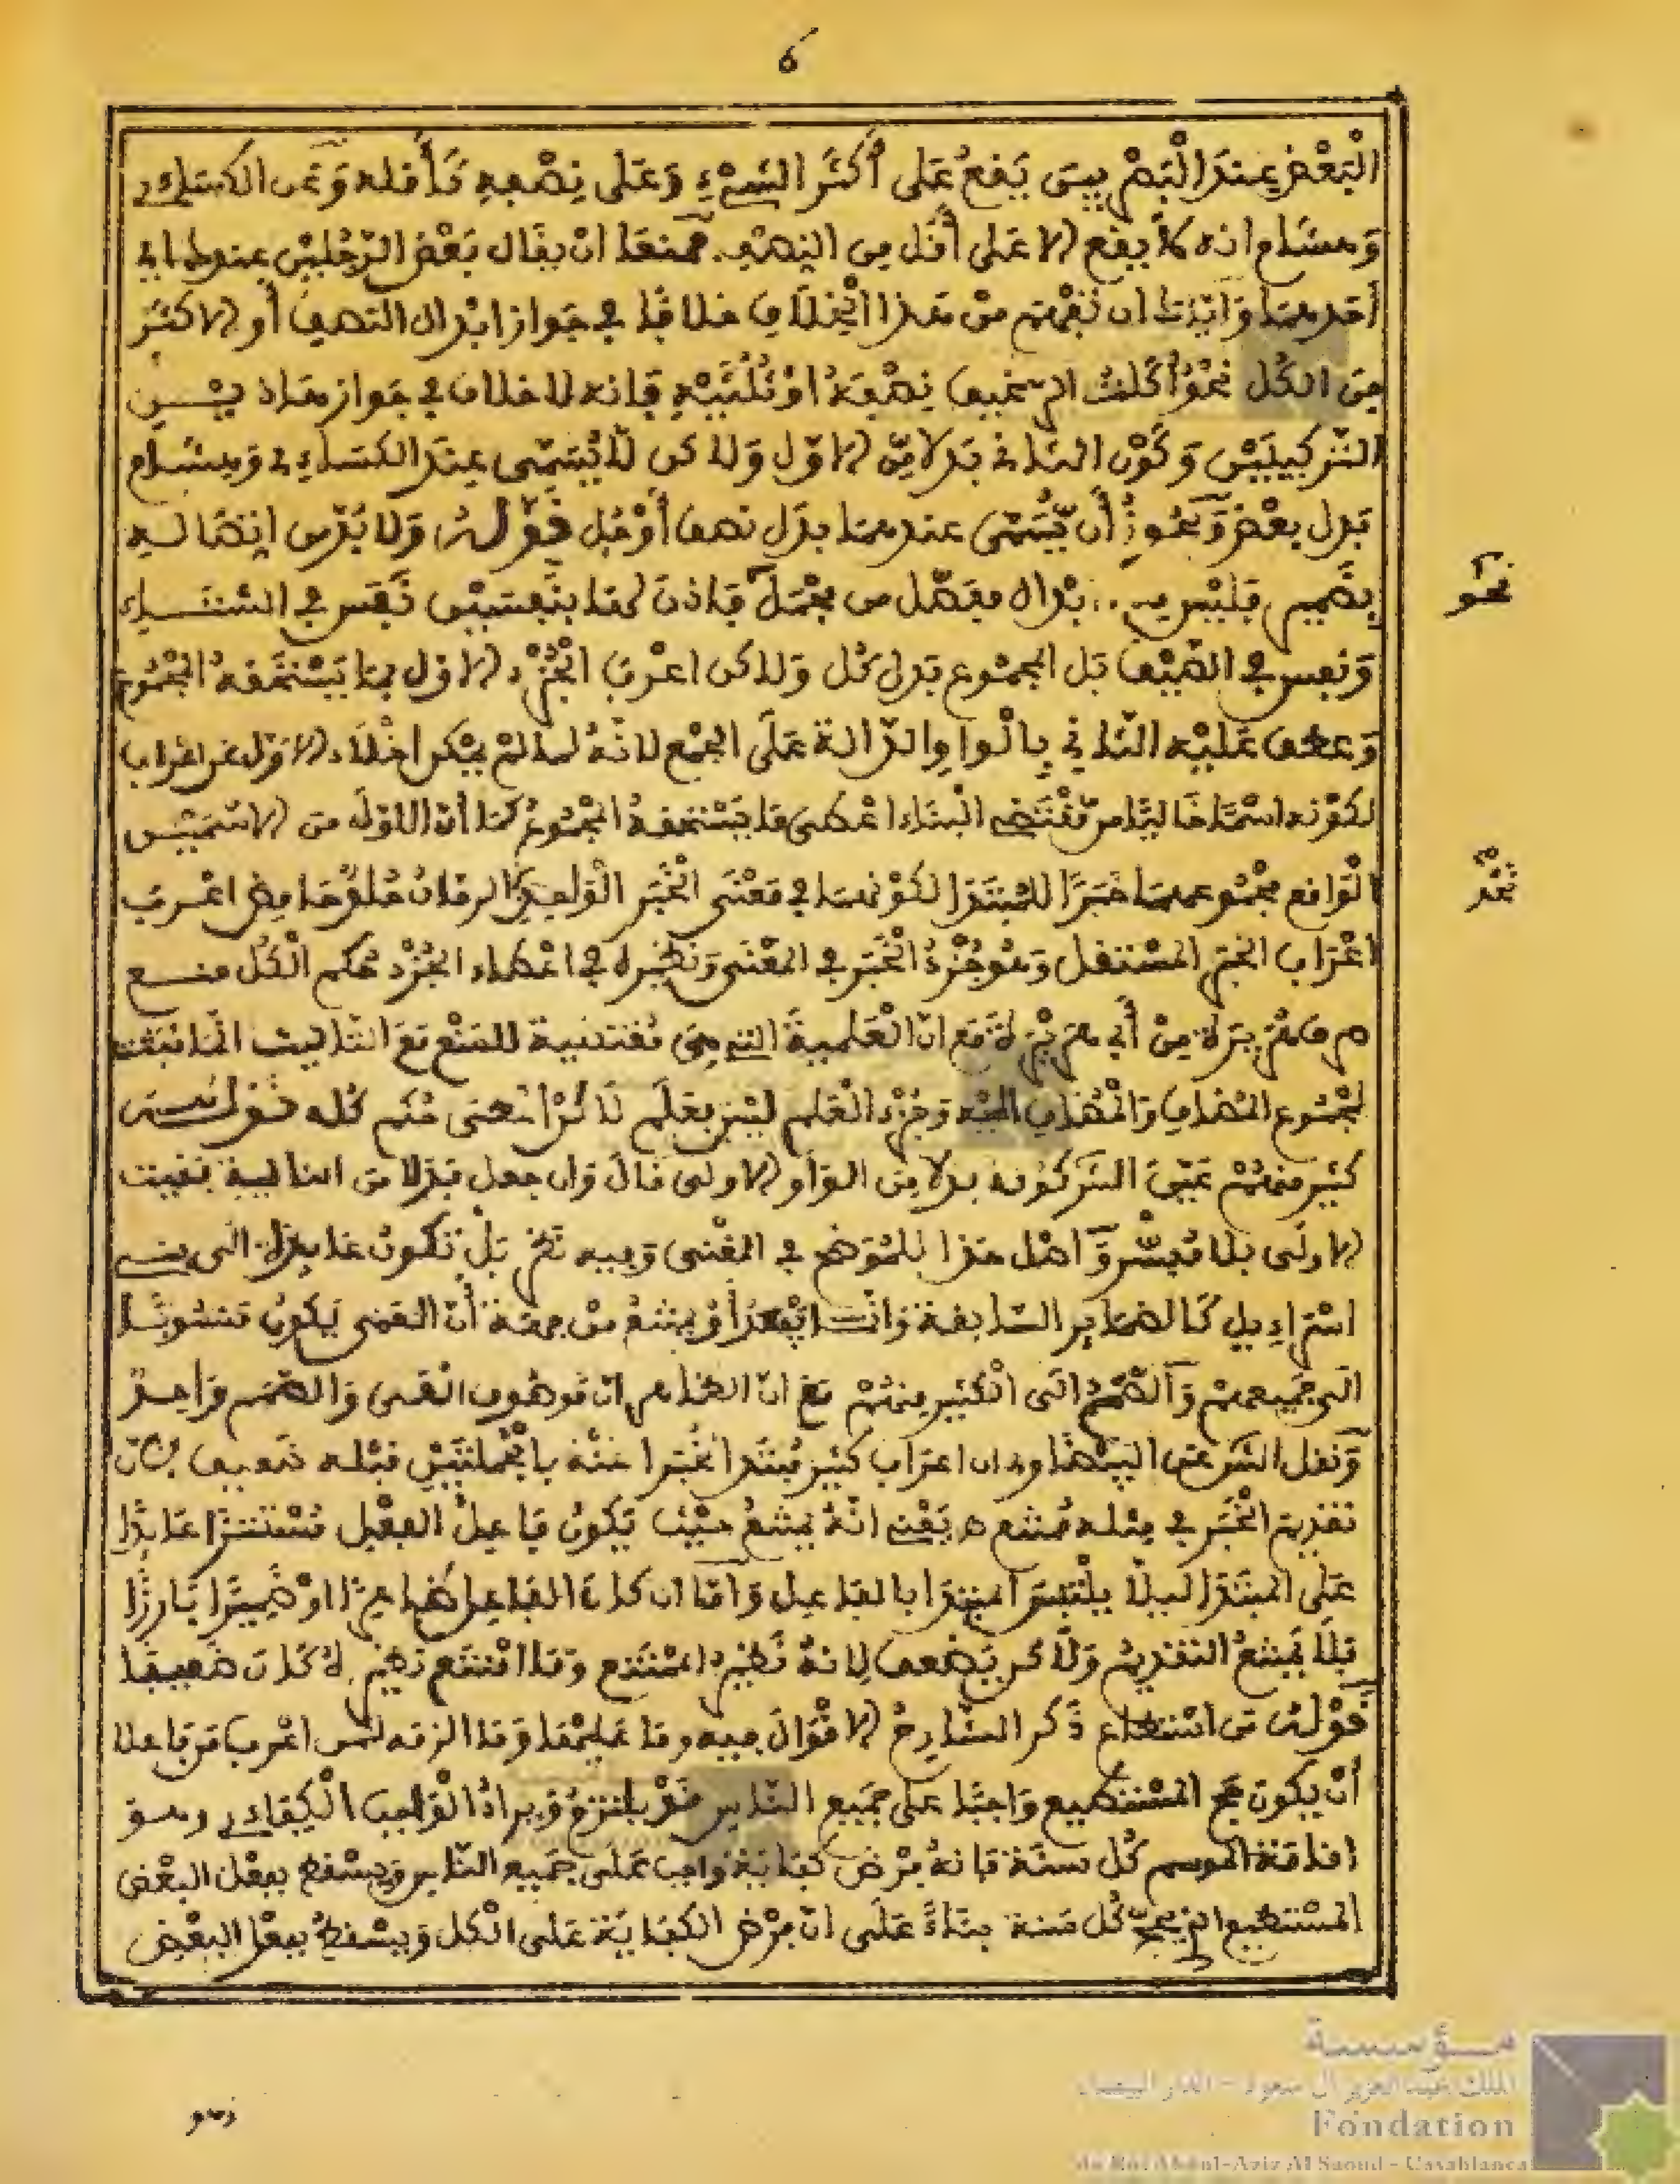 6
البعض عند البصريين يقع على أكثر الشيء وعلى نصفه وأقله وعن الكسائي
وهشام انه لا يقع الا على أقل من النصف فمنعا ان يقال بعض الرجلين عندهما اي
أحدهما وإياك ان تفهم من هذا الخلاف خلافا في جواز ابدال النصف أو الاكثر
من الكل نحو أكلت الرغيف نصفه او ثلثيه فانه لا خلاف في جواز هذين
التركيبين وكون الثاني بدلا من الاول ولاكن لا يسمى عند الكسائي وهشام
بدل بعض ويجوز أن يسمى عندهما بدل نصف أو جل قوله ولا بد من اتصاله
بضمير فليس من بدل مفصل من مجمل فاذن لها بنفسين نفس في الشتاء
ونفس في الصيف بل المجموع بدل كل ولاكن اعرب الجزء الاول بما يستحقه المجموع
وعطف عليه الثاني بالواو الدالة على الجمع لانه لما لم يمكن اخلاء الاول عن اعراب
لكونه اسما خاليا من مقتضي البناء اعطى ما يستحقه المجموع كما أن الاول من الاسمين
الواقع مجموعهما خبرا للمبتدإ لكونهما في معنى الخبر الواحد كالرمان حلو حامض اعرب
اعراب الخبر المستقل وهو جزء الخبر في المعنى ونظيره في اعطاء الجزء حكم الكل منع
صرف هريرة من أبي هريرة مع ان العلمية التي هي مقتضية للمنع مع التأنيث انما ثبتت
لمجموع المضاف والمضاف اليه وجزء العلم ليس بعلم لاكن اعطى حكم كله قوله
كثير منهم عين الشر كونه بدلا من الواو الاولى قال وان جعل بدلا من الثانية بقيت
الاولى بلا مفسر وأصل هذا للموضح في المغنى وفيه نظر بل تكون عائدة الى بني
اسراءيل كالضماير السابقة وانت ايضا يمتنع من جهة أن العمى يكون منسوبا
الى جميعهم والصمم الى الكثير منهم مع ان الظاهر ان موصوف العمى والصمم واحد
ونقل الشر عن البيضاوي ان اعراب كثير مبتدا مخبرا عنه بالجملتين قبله ضعيف لان
تقديم الخبر في مثله ممتنع ه يعني انه يمتنع حيث يكون فاعل الفعل مستترا عائدا
على المبتدإ ليلا يلتبس المبتدا بالفاعل واما ان كان الفاعل ظاهرا او ضميرا بارزا
فلا يمتنع التقديم ولاكن يضعف لانه نظير الممتنع وما امتنع نظيره كان ضعيفا
قوله من استطاع ذكر الشارح الاقوال فيه وما عليها وما الزمه لمن اعرب من فاعلا
أن يكون حج المستطيع واجبا على جميع الناس هو يلتزمه ويراد الواجب الكفاءي وهو
اقامة الموسم كل سنة فانه فرض كفاية واجب على جميع الناس ويسقط بفعل البعض
المستطيع الذي يحج كل سنة بناء على ان فرض الكفاية على الكل ويسقط بفعل البعض
نحو
وهو
مؤسسة
الملك عبد العزيز آل سعود - الدار البيضاء
Fondation
du Roi Abdul-Aziz Al Saoud - Casablanca